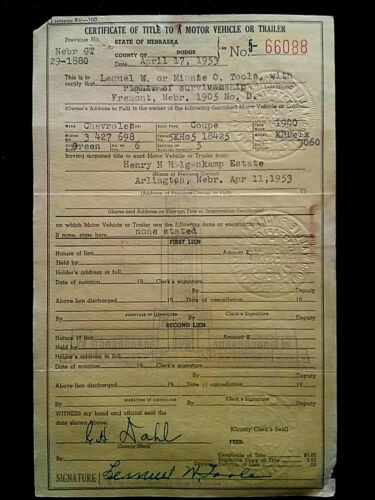 RV-100
CERTIFICATE OF TITLE TO A MOTOR VEHICLE OR TRAILER
Previous No. STATE OF NEBRASKA
Nebr CT COUNTY OF DODGE No. 5- 66088
29-1880 Date April 17, 1953
This is to certify that Lemuel W. or Minnie O. Toole, with
rights of survivorship
Fremont, Nebr. 1905 No. D.
(Owner's Address in Full) is the owner of the following described Motor Vehicle or Trailer
Chevrolet Coupe 1940
3 427 698 5KH05 18425 KMDelx
Green 6 5 3060
having acquired title to said Motor Vehicle or Trailer from:
Henry H Holgenkamp Estate
(Name of Previous Owner)
Arlington, Nebr. Apr 11,1953
(Address of Previous Owner in Full)
(Name and Address or Foreign Title or Registration Certificate)
on which Motor Vehicle or Trailer are the following liens or encumbrances:
If none, state here none stated
FIRST LIEN
Nature of lien Amount $
Held by
Holder's address in full
Date of notation 19 Clerk's Signature
By Deputy
Above lien discharged 19 Date of cancellation 19
By Clerk's Signature
SIGNATURE OF LIENHOLDER
By By Deputy
SECOND LIEN
Nature of lien Amount $
Held by
Holder's address in full
Date of notation 19 Clerk's Signature
By Deputy
Above lien discharged 19 Date of cancellation 19
By Clerk's Signature
SIGNATURE OF LIENHOLDER
By By Deputy
WITNESS my hand and official seal the
date shown above.
Dahl
County Clerk (County Clerk's Seal)
FEES:
Certificate of Title $1.00
Duplicate Copy of Title
Notation of Lien
SIGNATURE Lemuel W Toole